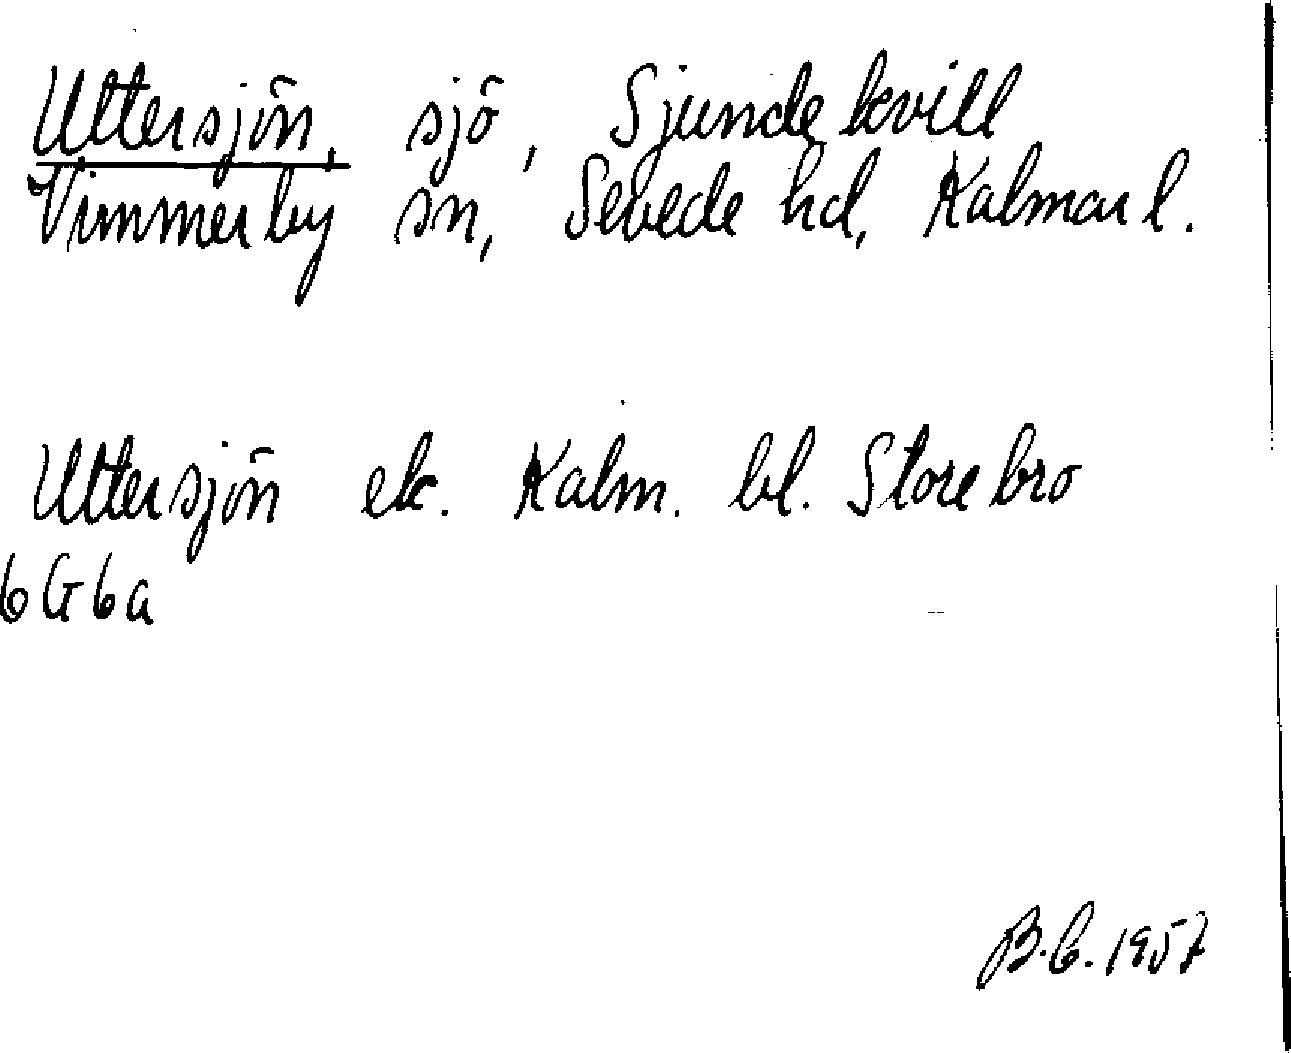 Uttersjön, sjö, Sjundekvill
Vimmerby sn, Sevede hd, Kalmar l.
Uttersjön ek. Kalm. bl. Storebro
6G6a
B.C. 1957